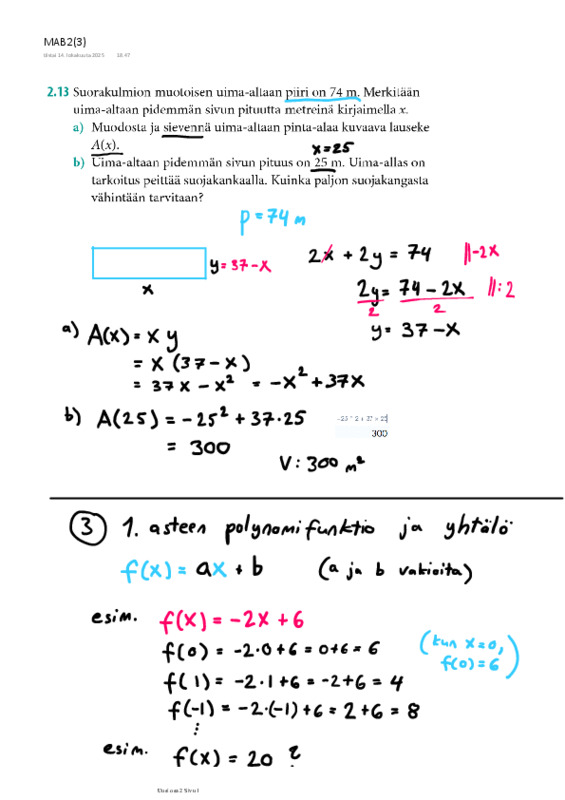 MAB2(3)
2.13 Suorakulmion muotoisen uima-altaan piiri on 74 m. Merkitään
uima-altaan pidemmän sivun pituutta metreinä kirjaimella x.
a) Muodosta ja sievennä uima-altaan pinta-alaa kuvaava lauseke
A(x).
x=25
b) Uima-altaan pidemmän sivun pituus on 25 m. Uima-allas on
tarkoitus peittää suojakankaalla. Kuinka paljon suojakangasta
vähintään tarvitaan?
p = 74 m
y = 37-x
x
2x + 2y = 74 ||-2x
2y = 74 - 2x ||:2
2 2
y = 37-x
a) A(x) = x y
= x (37-x)
= 37x - x² = -x² + 37x
b) A(25) = -25² + 37·25
= 300
300
V: 300 m²
3 1. asteen polynomifunktio ja yhtälö
f(x) = ax + b (a ja b vakioita)
esim. f(x) = -2x + 6
f(0) = -2·0+6 = 0+6 = 6
(kun x=0,
f(0)=6)
f(1) = -2·1+6 = -2+6 = 4
f(-1) = -2·(-1)+6 = 2+6 = 8
⋮
esim. f(x) = 20 ?